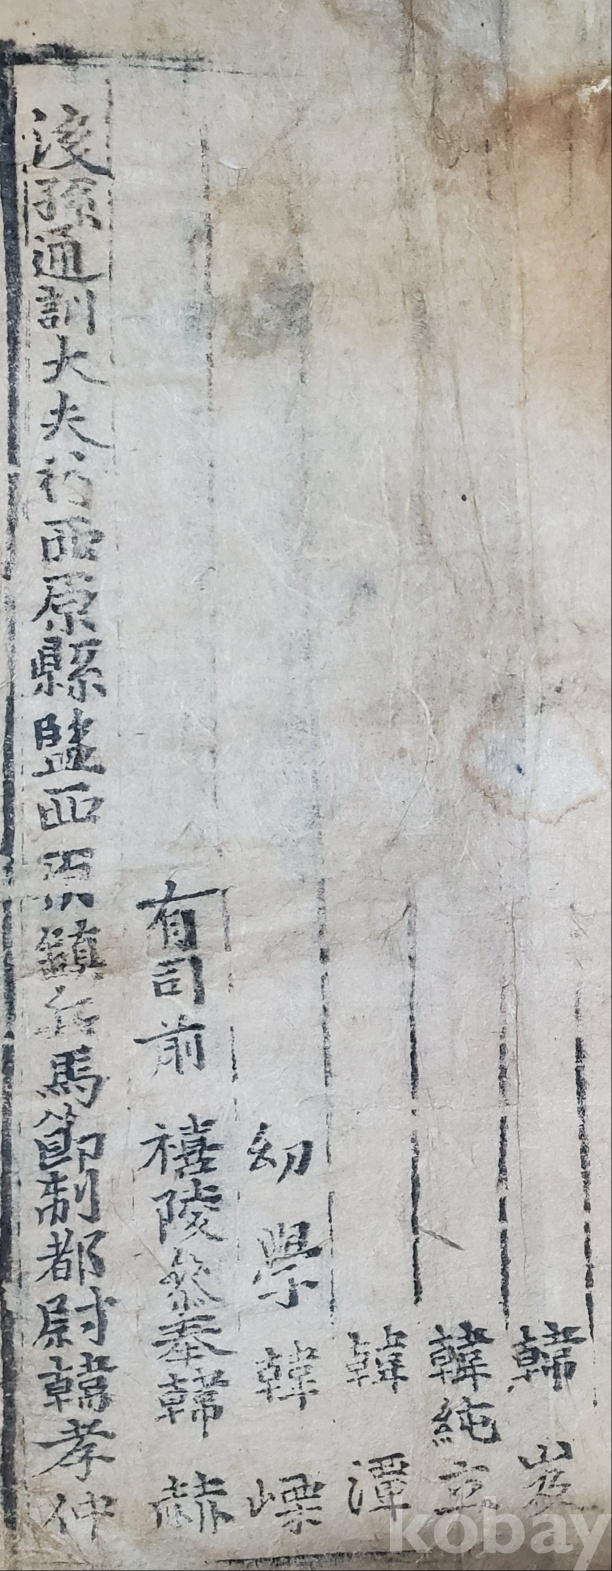 韓岌
韓純立
韓潭
幼學韓
有司前禧陵參奉韓赫
後孫通訓大夫行西原縣監西原鎭兵馬節制都尉韓孝仲
kobay